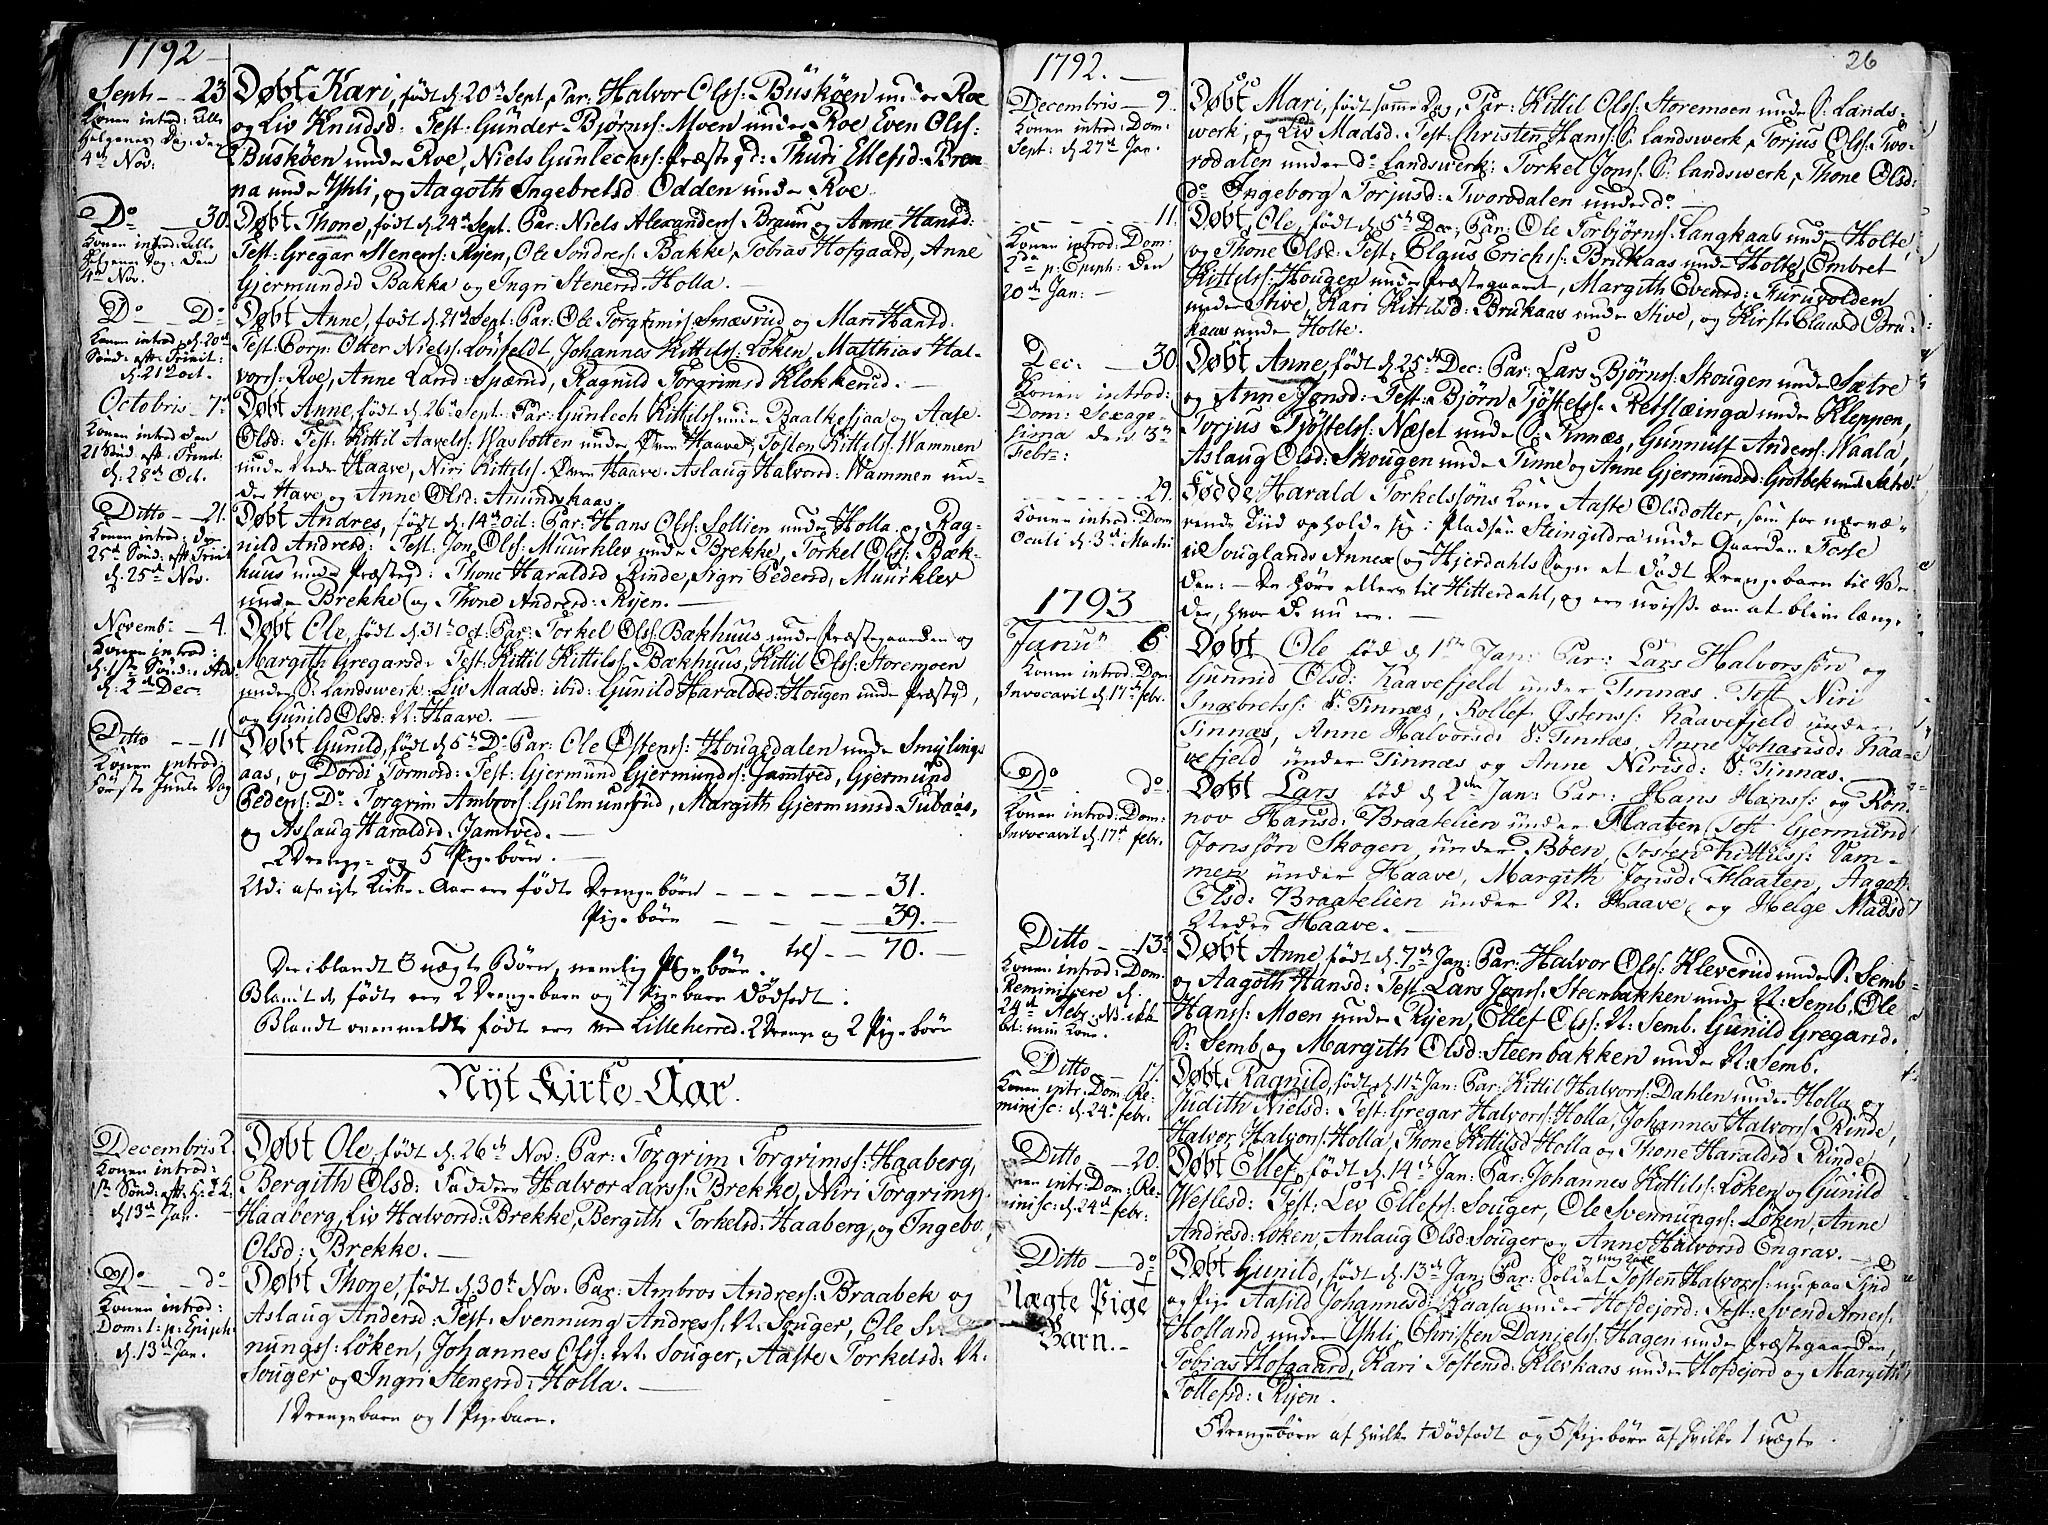 1792
Sept: 23
Konen introd: Alle
Helgenes Dag: den
4de Nov:
Døbt Kari, født d. 20de Sept, Par: Halvor Olss: Buskøen under Roe
og Liv Knudsd: Test: Gunder Bjørns: Moen under Roe Even Olss:
Buskøen under Roe, Niels Gunlechs: Præstegd: Thuri Ellefsd: Bren-
na under Yhli, og Aagoth Ingebretsd Odden under Roe.
Do 30.
Konen introd: Alle
Helgenes Dag: den
4de Nov.
Døbt Thone, født d. 24de Sept. Par: Niels Alexanders: Braun og Anne Hansd:
Test: Gregar Steners: Rijen, Ole Sondres: Bakke, Tobias Hofgaard, Anne
Gjermundsd Bakka og Ingri Stenersd: Holla.
Do Do
Konen introd d. 20de
Sønd: eft: Trinit:
d. 21de Oct.
Døbt Anne, født d. 21de Sept: Par: Ole Torgrims: Smæsrud og Mari Hansd:
Test: Corp: Otter Niels: Lønfeldt, Johannes Kittils: Løken, Matthias Hal-
vors: Roe, Anne Land: Spærud, Ragnild Torgrimsd Klokkerud.
Octobris 7de
Konen introd den
21 Sønd: eft: Trinit:
d. 28de Oct.
Døbt Anne, født d. 26de Sept: Par: Gunlech Kittilss under Baalkesjaa og Aase
Olsd: Test: Kittil Aavels: Wasbotten under Øvre Haave, Tosten Kittils: Wammen
under Nedre Haave, Niri Kittils. Øvre Haave. Aslaug Halvorsd: Wammen un-
der Have og Anne Olsd: Anundskaas.
Ditto 21.
Konen introd: den
25de Sønd: eft Trinit
d. 25de Nov.
Døbt Andres, født d. 14de Oct: Par: Hans Olss: Sollien under Holla og Rag-
nild Andresd: Test: Jon Olss: Muurklev under Brekke, Torkel Olss: Bæk-
huus under Præstegd: Thone Haraldsd Rinde, Sigri Pedersd, Muurklev
under Brekke og Thone Andresd: Rijen.
Novemb: 4.
Konen introd:
d. 1ste Sønd: i Adv:
d. 2de Dec:
Døbt Ole, født d. 31te Oct: Par: Torkel Olss: Bækhuus under Præstegaarden og
Margith Gregarsd: Test: Kittil Kittils: Bækhuus, Kittil Olss: Storemoen
under S: Landswerk: Liv Madsd: ibid: Gunild Haraldsd: Hougen under Præstegd,
og Gunild Olsd: N: Haave.
Ditto 11
Konen introd:
Første Juule Dag
Døbt Gunild, født d. 5te Do Par: Ole Østens: Hougedalen under Smylings
aas, og Dordi Tormosd: Test: Gjermund Gjermunds: Jamtved, Gjermund
Peders: Do Torgrim Ambros: Gulmundrud, Margith Gjermundsd Tubaas,
og Aslaug Haraldsd: Jamtved.
2 Drenge- og 5 Pigebørn.
Udi afvigte Kirke-Aar ere fødte Drengebørn 31.
Pigebørn 39.
tils 70.
Deriblandt 3 uægte Børn, nemlig Pigebørn.
Blandt de fødte ere 2 Drengebarn og 1 Pigebarn Dødfødt.
Blandt ovenmeldte fødte ere ved Lilleherred 2 Drenge og 2 Pigebørn
Nyt Kirke-Aar.
Decembris 2.
Konen introd:
1ste Sønd: eft: H: 3 K:
d. 13de Jan.
Døbt Ole, født d. 26de Nov: Par: Torgrim Torgrims: Haaberg,
Bergith Olsd: Faddere Halvor Lars: Brekke, Niri Torgrims
Haaberg, Liv Halvorsd: Brekke, Bergith Torkelsd: Haaberg, og Ingebor
Olsd: Brekke.
Do do
Konen introd:
Dom: 1: p: Epiph:
d. 13de Jan.
Døbt Thone, født d. 30te Nov. Par: Ambros Andres: Braabek og
Aslaug Andersd: Test: Svennung Andres: N: Souger, Ole Sven-
nungs: Løken, Johannes Olss: N: Souger, Aaste Torkelsd: N:
Souger og Ingri Stenersd: Holla.
1 Drengebarn og 1 Pigebarn.
26
1792.
Decembris 9.
Konen introd: Dom:
Sept: d. 27de Jan.
Døbt Mari, født samme Dag, Par: Kittil Olss: Storemoen under S: Lands-
werk, og Liv Madsd: Test: Christen Hans: S: Landswerk, Torjus Olss: Two-
rodalen under do Landswerk: Torkel Jons: S: Landswerk, Thone Olsd:
do Ingeborg Torjusd: Tworodalen under do
11.
Konen introd: Dom:
2da p: Epiph: den
20de Jan:
Døbt Ole, født d. 5te Dec, Par: Ole Torbjørns: Langkaas under Holte,
og Thone Olsd: Test: Clgus Erichs: Brukaas under Holte, Embret
Kittils: Hougen under Præstegaaret, Margith Evensd: Furuvolden
under Stive, Kari Kittilsd: Brukaas under Stive, og Kirsti Clausd Bru-
kaas under Holte.
Dec: 30.
Konen introd:
Dom: Sexage-
sima den 3de
Febr:
Døbt Anne, født d. 25de Dec: Par: Lars Bjørns: Skougen under Sætre
og Anne Jonsd: Test: Bjørn Tjøstels: Retslæinga under Kleppen,
Torjus Tjøstels: Næset under S: Rnnæs, Gunnulf Anders: Waala,
Aslaug Olsd: Skougen under Tinne og Anne Gjermundsd: Grotbek under Sætre.
29.
Konen introd: Dom
Oculi d. 3de Martii
Fødde Harald Torkelssøns Kone Aaste Olsdotter, som for nærvæ-
rende Tiid opholde sig i Pladsen Steingildra under Gaarden Forse
i Souglands Annex og Hjerdahls Sogn et dødt Drengebarn til Ver-
den: De høre ellers til Hitterdahl, og ere uvisse om at blive læng-
der, hvor de nu ere.
1793
Janur 6
Konen introd: Dom:
Invocavit d. 17de febr.
Døbt Ole fød d. 1ste Jan: Par: Lars Halvorssøn og
Gunnild Olsd: Kaavefjeld under Tinnæs. Test Niri
Ingebrets: S: Tinnæs, Rollef Østens: Kaavefjeld under
Tinnæs, Anne Halvorsd: S: Tinnæs, Anne Johansd: Kaa-
vefjeld under Tinnæs og Anne Nirisd: S: Tinnæs.
Do do
Konen introd: Dom:
Invocavit d. 17de febr.
Døbt Lars fød d. 2den Jan: Par: Hans Hanss: og Røn-
nov Hansd: Braatelien under Flaaten Test Gjermund
Jonssøn Skogen under Bøen, Tosten Kittils: Vam-
men under Haave, Margith Jonsd: Flaaten, Aagot
Olsd: Braatelien under N: Haave og Helge Madsd
Nedre Haave.
Ditto 13de
Konen introd: Dom.
Reminiscere d.
24de Febr.
Døbt Anne, født d. 7de Jan: Par: Halvor Olss: Kleverud under S: Semb
og Aagoth Hansd: Test: Lars Jens: Steenbakken under N: Semb, Ole
Hanss: Moen under Rijen, Ellef Olss: N: Semb. Gunild Gregarsd.
S: Semb og Margith Olsd: Steenbakken under N: Semb.
Ditto 17.
Konen intr: Dom: Re-
minisc: d. 24de febr.
Døbt Ragnild, født d. 11te Jan: Par: Kittil Halvors: Dahlen under Holla og
Judith Nielsd: Test: Gregar Halvors: Holla, Johannes Halvors: Rinde,
Halvor Halvors: Holla, Thone Kittilsd Holla og Thone Haraldsd Rinde.
Ditto 20.
Konen intr: Dom: Re-
minisc: d. 24de febr:
Døbt Ellef, født d. 14de Jan: Par: Johannes Kittils: Løken og Gunild
Weflesd: Test: Lev Ellefs: Souger, Ole Svennungs: Løken, Anne
Andresd: Løken, Anlaug Olsd: Souger og Anne Halvorsd Engrav.
Ditto do
Uægte Pige
Barn.
Døbt Gunild, født d. 13de Jan, Par: Soldat Tosten Halvors: nu paa Tind
og Pige Aasild Johannesd: Kaasa under Hofdejord: Test: Svend Arnes:
Holland under Yhli, Christen Daniels: Hagen under Præstegaarden,
Tobias Hofgaard, Kari Tostensd: Klevkaas under Hofdejord og Margith
Tollefsd: Rijen.
5 Drengebørn af hvilke 1 dødfødt og 5 Pigebørn af hvilke 1 uægte.